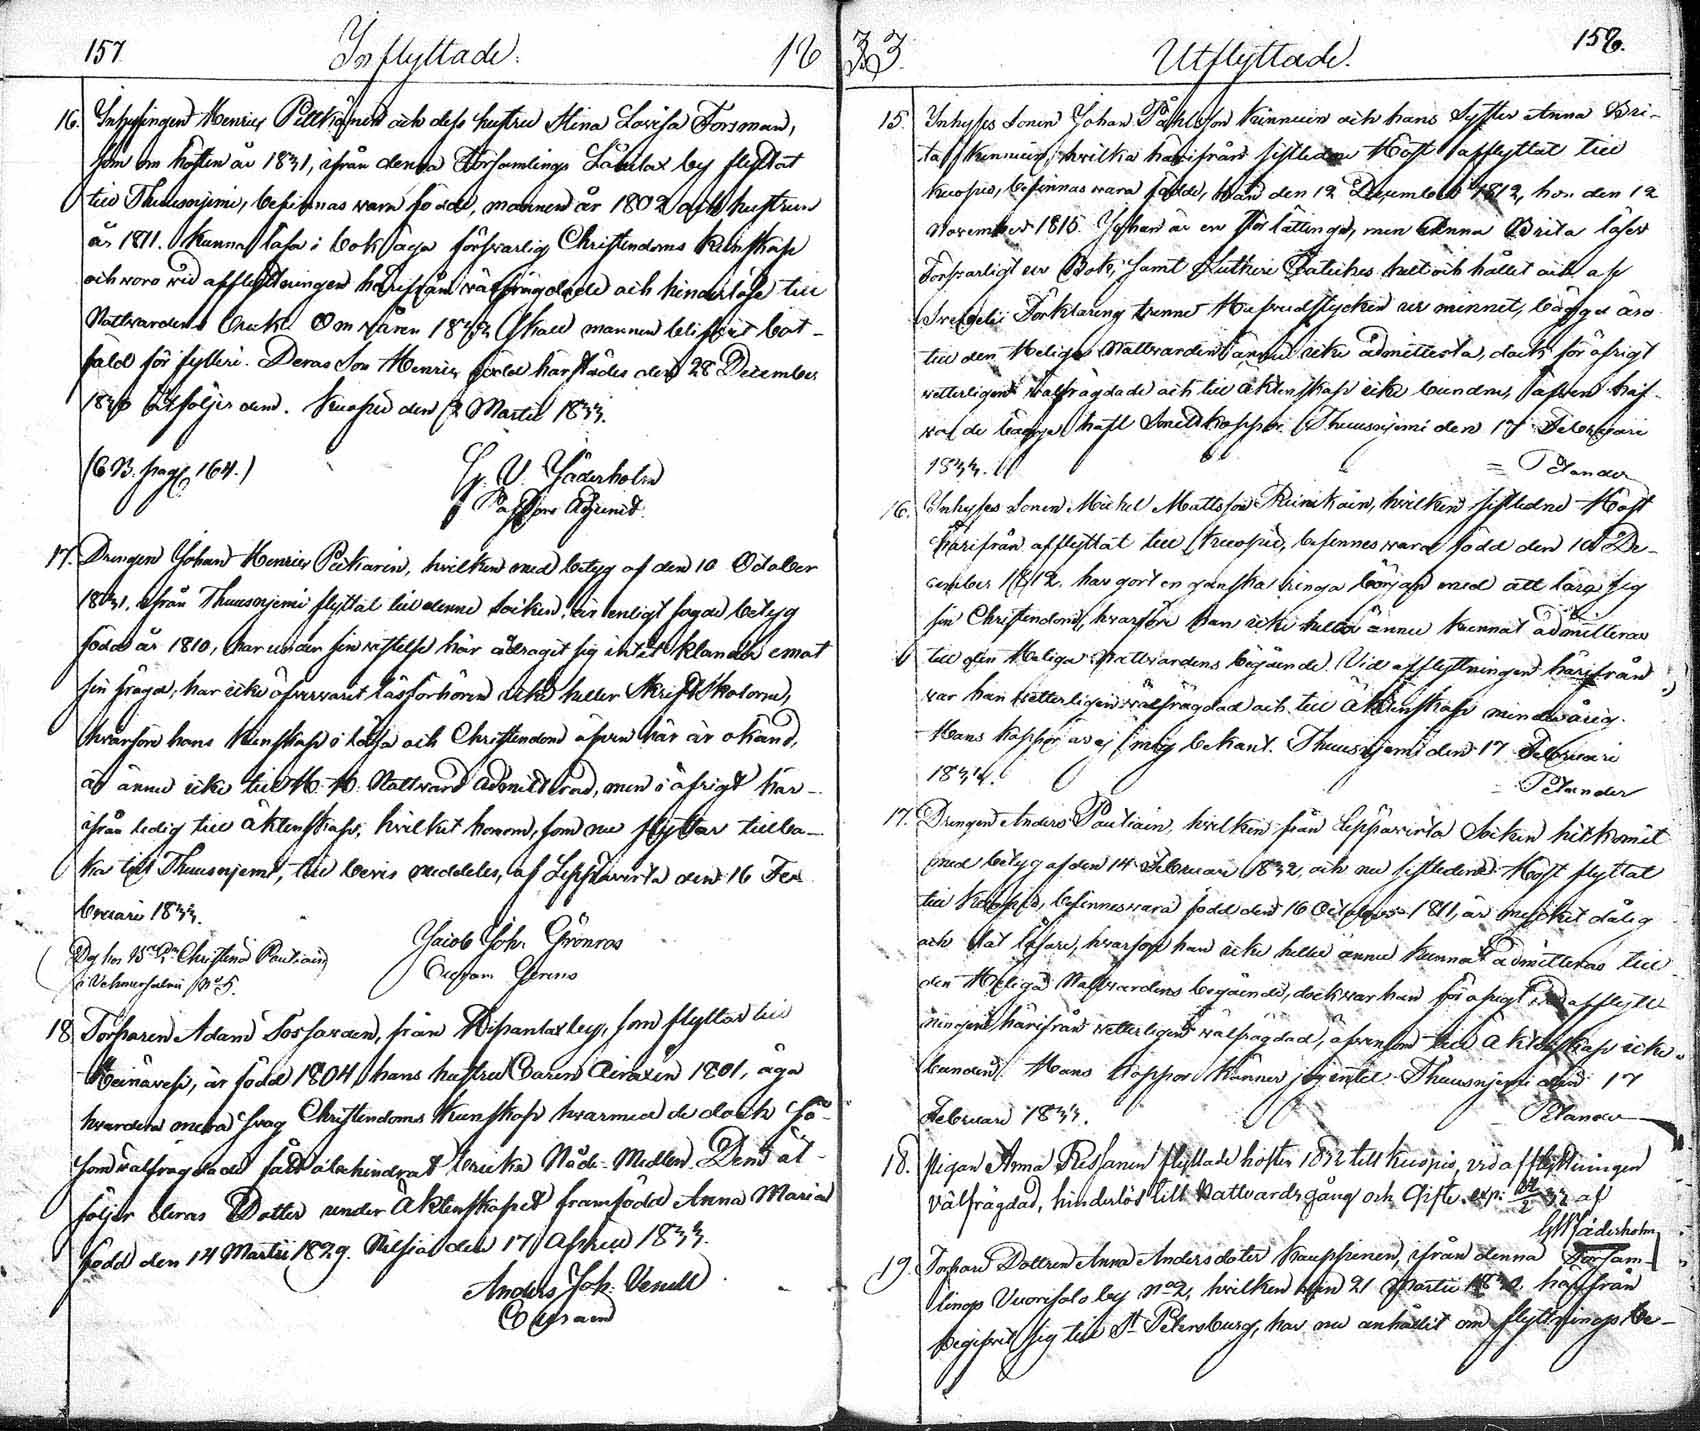 157 Inflyttade. 18
16. Inhysingen Henric Pittkänen och dess hustru Stina Lovisa Forsman,
som om hösten år 1831, ifrån denna Församlings by flyttat
till Thuusnjemi, befinnas wara födde, mannen år 1802 och hustrun
år 1811. Kunna läsa i bok äga förswarlig Christendoms Kunskap
och woro wid afflyttningen härifrån wälfrägdade och hinderlöse till
Nattwardens bruk. Om wåren 1833 skall mannen blifwit bot-
fäld för fylleri. Deras Son Henric född härstädes den 28 December
1830 åtföljer dem. Kuopio den 2 Martii 1833.
(C B. pag. 164.) G. W. Söderholm
Pastors Adjunct.
17. Drengen Johan Henric Pickarin, hvilken med betyg af den 10 October
1831. ifrån Thuusnjemi flyttat till denne Socken, är enligt sagde betyg
född år 1810, har under sin wistelse här ådragit sig intet klander emot
sin frägd, har icke öfverwarit läsförhören icke heller Skrift Skolorne,
hwarföre hans Kunskap i läsa och Christendom äfven här är okänd,
är ännu icke till H. H. Nattward Admitterad, men i öfrigt här-
ifrån ledig till äktenskap, hvilket honom, som nu flyttar tillba-
ka till Thuusnjemi, till bevis meddeles, af Leppävirta den 16 Fe-
bruari 1833.
Jacob Joh. Grönros
Dog hos Christina Pautiain
i Vehmersalmi No 5.
18. Torparen Adam Sorsanen, från by, som flyttar till
Heinävesi, är född 1804, hans hustru Caren Airaxin 1801, äga
hwardera mera swag Christendoms kunskap hwarmed de dock så-
som wälfrägdade fått obehindrat bruka Nåde-Medlen. Dem åt-
följer deras Dotter under Äktenskapet framfödd Anna Maria
född den 14 Martii 1829. Nilsiä den 17 April 1833.
Anders Joh. Venell
33. Utflyttade. 158.
15. Inhyses Sonen Johan Påhlsson Kinnuin och hans Syster Anna Bri-
ta Kinnuin, hvilka härifrån sistledne Höst afflyttat till
Kuopio, befinnas wara födde, han den 12 December 1812, hon den 12
November 1815. Johan är en lättinge, men Anna Brita läser
förswarligt ur Bok, samt Lutheri Cateches helt och hållet och af
Svebelii Förklaring trenne Hufvudstycken ur minnet, bägge äro
till den Heliga Nattvarden ännu icke admitterta, dock för öfrigt
wetterligen wälfrägdade och till äktenskap icke bundne, äfwen haf-
wa de bägge haft Smittkoppor. Thuusnjemi den 17 Februari
1833. Petander
16. Inhyses Sonen Michel Mattsson Reinikain, hvilken sistledne Höst
härifrån afflyttat till Kuopio, befinnes wara född den 10 De-
cember 1812. har gjort en ganska ringa början med att lära sig
sin Christendom, hwarföre han icke heller ännu kunnat admitteras
till den Heliga Nattwardens begående. Vid afflyttningen härifrån
war han wetterligen wälfrägdad och till Äktenskap minderårig.
Hans koppor är ej mig bekant. Thuusnjemi den 17 Februari
1833. Petander
17. Drengen Anders Pautiain, hvilken från Leppävirta Socken hitkomit
med betyg af den 14 Februari 1832, och nu sistledne Höst flyttat
till Kuopio, befinnes wara född den 16 October 1811, är mycket dålig
och lat läsare, hwarföre han icke heller ännu kunnat admitteras till
den Heliga Nattwardens begående, dock war han för öfrigt wid afflytt-
ningen härifrån wetterligen wälfrägdad, äfwensom till Äktenskap icke
bunden. Hans koppor känner jag intet. Thuusnjemi den 17
Februari 1833. Petander
18. Pigan Anna Rissanen flyttade hösten 1832 till Kuopio, vid afflyttningen
välfrägdad, hinderlös till Nattvardsgång och Gifte. exp. 33 af
GWSöderholm
19. Torpare Dottren Anna Andersdoter Kauppinen, ifrån denna Försam-
lings Vuorisalo by No 2, hvilken den 21 Martii 1832 härifrån
begifvit sig till St Petersburg, har nu anhållit om flyttnings be-